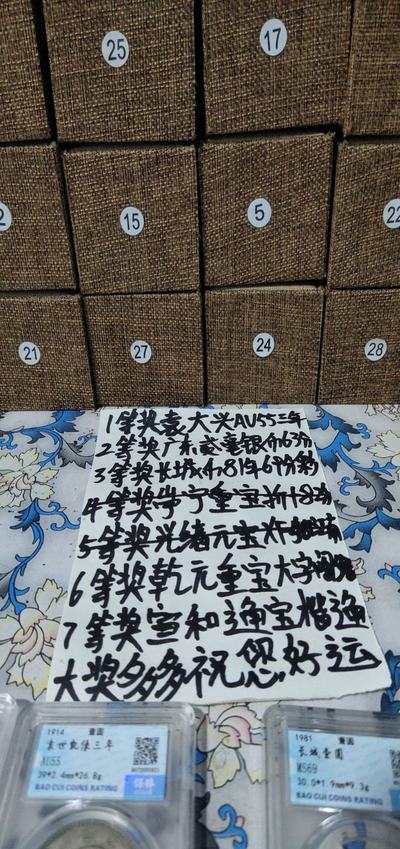 25
17
15
5
22
21
27
24
28
1等奖袁大头AU55三年
2等奖广东贰毫银币63分
3等奖长城币81年69分
4等奖崇宁重宝折十82
5等奖光绪元宝
6等奖乾元重宝大字
7等奖宣和通宝楷通
大奖多多祝您好运
1914 壹圆
袁世凯像三年
AU55
39*2.4mm*26.8g
BAO CUI COINS RATING
保粹
1981 壹圆
长城壹圆
MS69
30.0*1.9mm*9.3g
BAO CUI COINS RATING